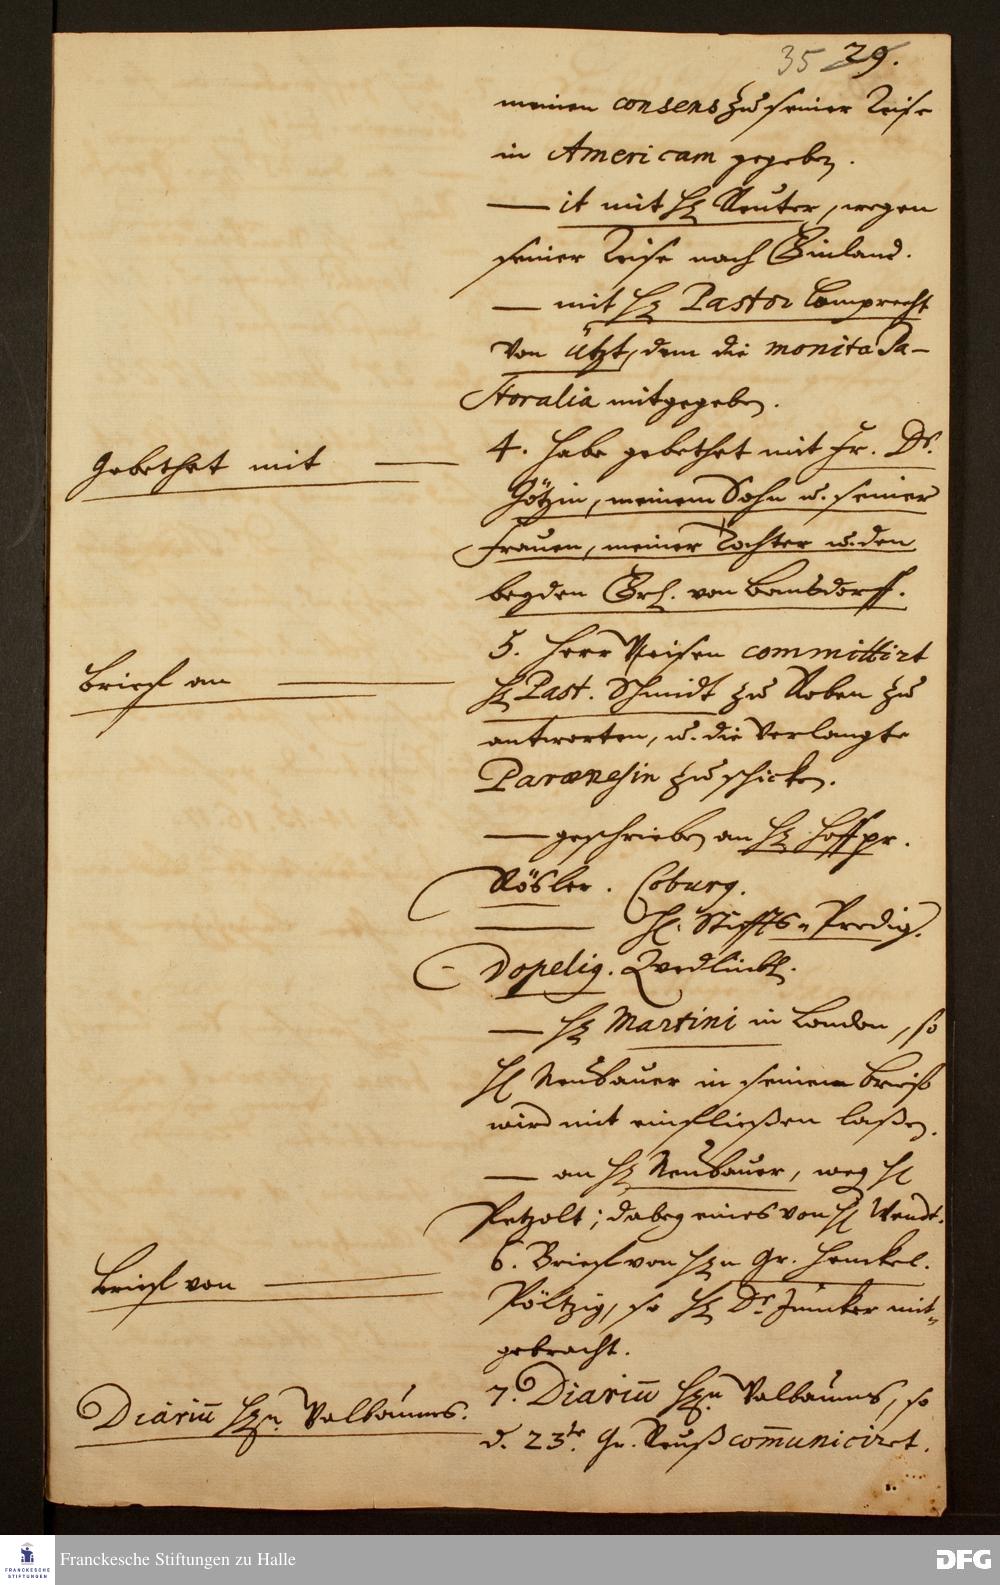 35 29.
meinen consens zu seiner Reise
in Americam gegeben.
— it mit H. Reuter, wegen
seiner Reise nach Einland.
— mit H. Pastor Lamprecht
von Ützt, dem die monita Pa-
storalia mitgegeben.
Gebethet mit —
4. Habe gebethet mit Fr. Dr.
Götzin, meinem Sohn u. seiner
Frauen, meiner Tochter u. den
beyden Grl. von Bansdorff.
Brief an —
5. Herr Weisen committirt
H. Past. Schmidt zu Roben zu
antworten, u. die verlangte
Paraenesin zu schicken.
— geschrieben an H. Hoffpr.
Rösler. Coburg.
— H. Stiffts-Predig.
Dopelig. Quedlinb.
— H. Martini in London, so
H. Neubauer in seinem Brief
wird mit einfließen laßen.
— an H. Neubauer, weg H.
Petzolt; dabey eines von H. Wendt.
Brief von —
6. Brief von Hn Gr. Henckel.
Pöltzig, so H. Dr Juncker mit-
gebracht.
Diariu Hn. Valbaums.
7. Diariu Hn. Valbaums, so
d. 23te. Gr. Reuß communiciret.
Franckesche Stiftungen zu Halle
FRANCKESCHE
STIFTUNGEN
DFG